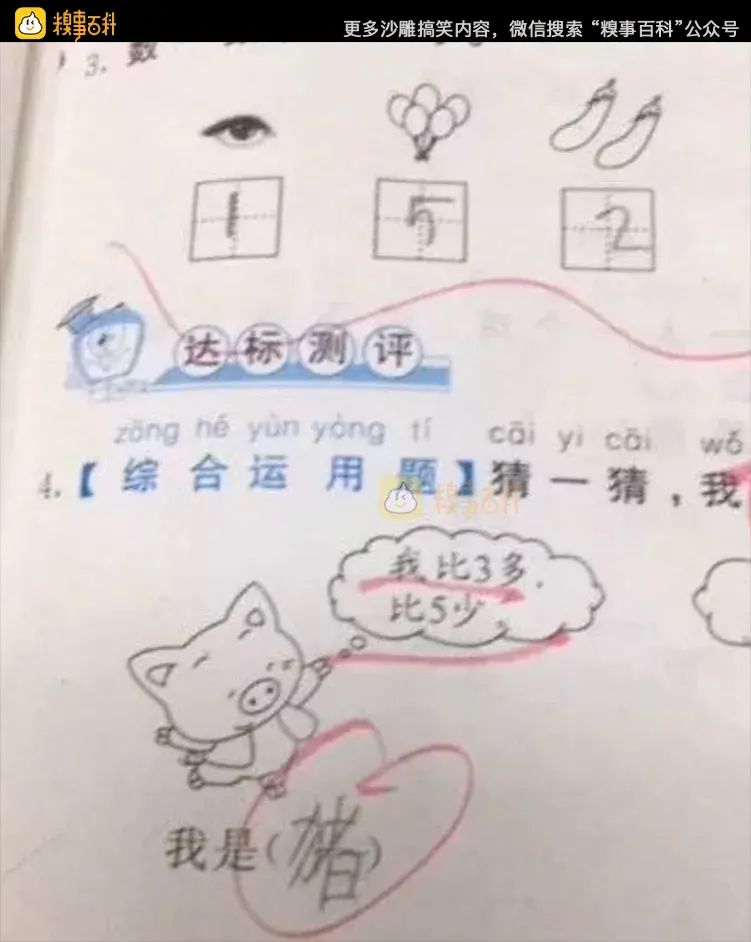 糗事百科 更多沙雕搞笑内容，微信搜索“糗事百科”公众号
3. 数
1 5 2
达标测评
zōng hé yùn yòng tí cāi yi cāi wǒ
4.【综合运用题】猜一猜，我
糗事百科
我比3多，
比5少。
我是(猪)